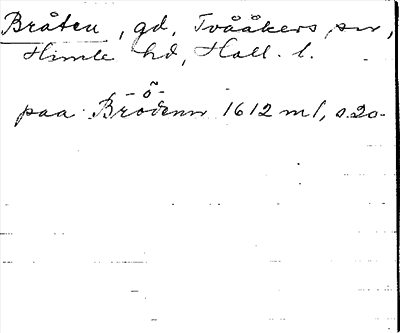 Bråten, gd, Tvååkers sn,
Himle hd, Hall. l.
- õ -
paa Brødenn 1612 ml, s. 20.